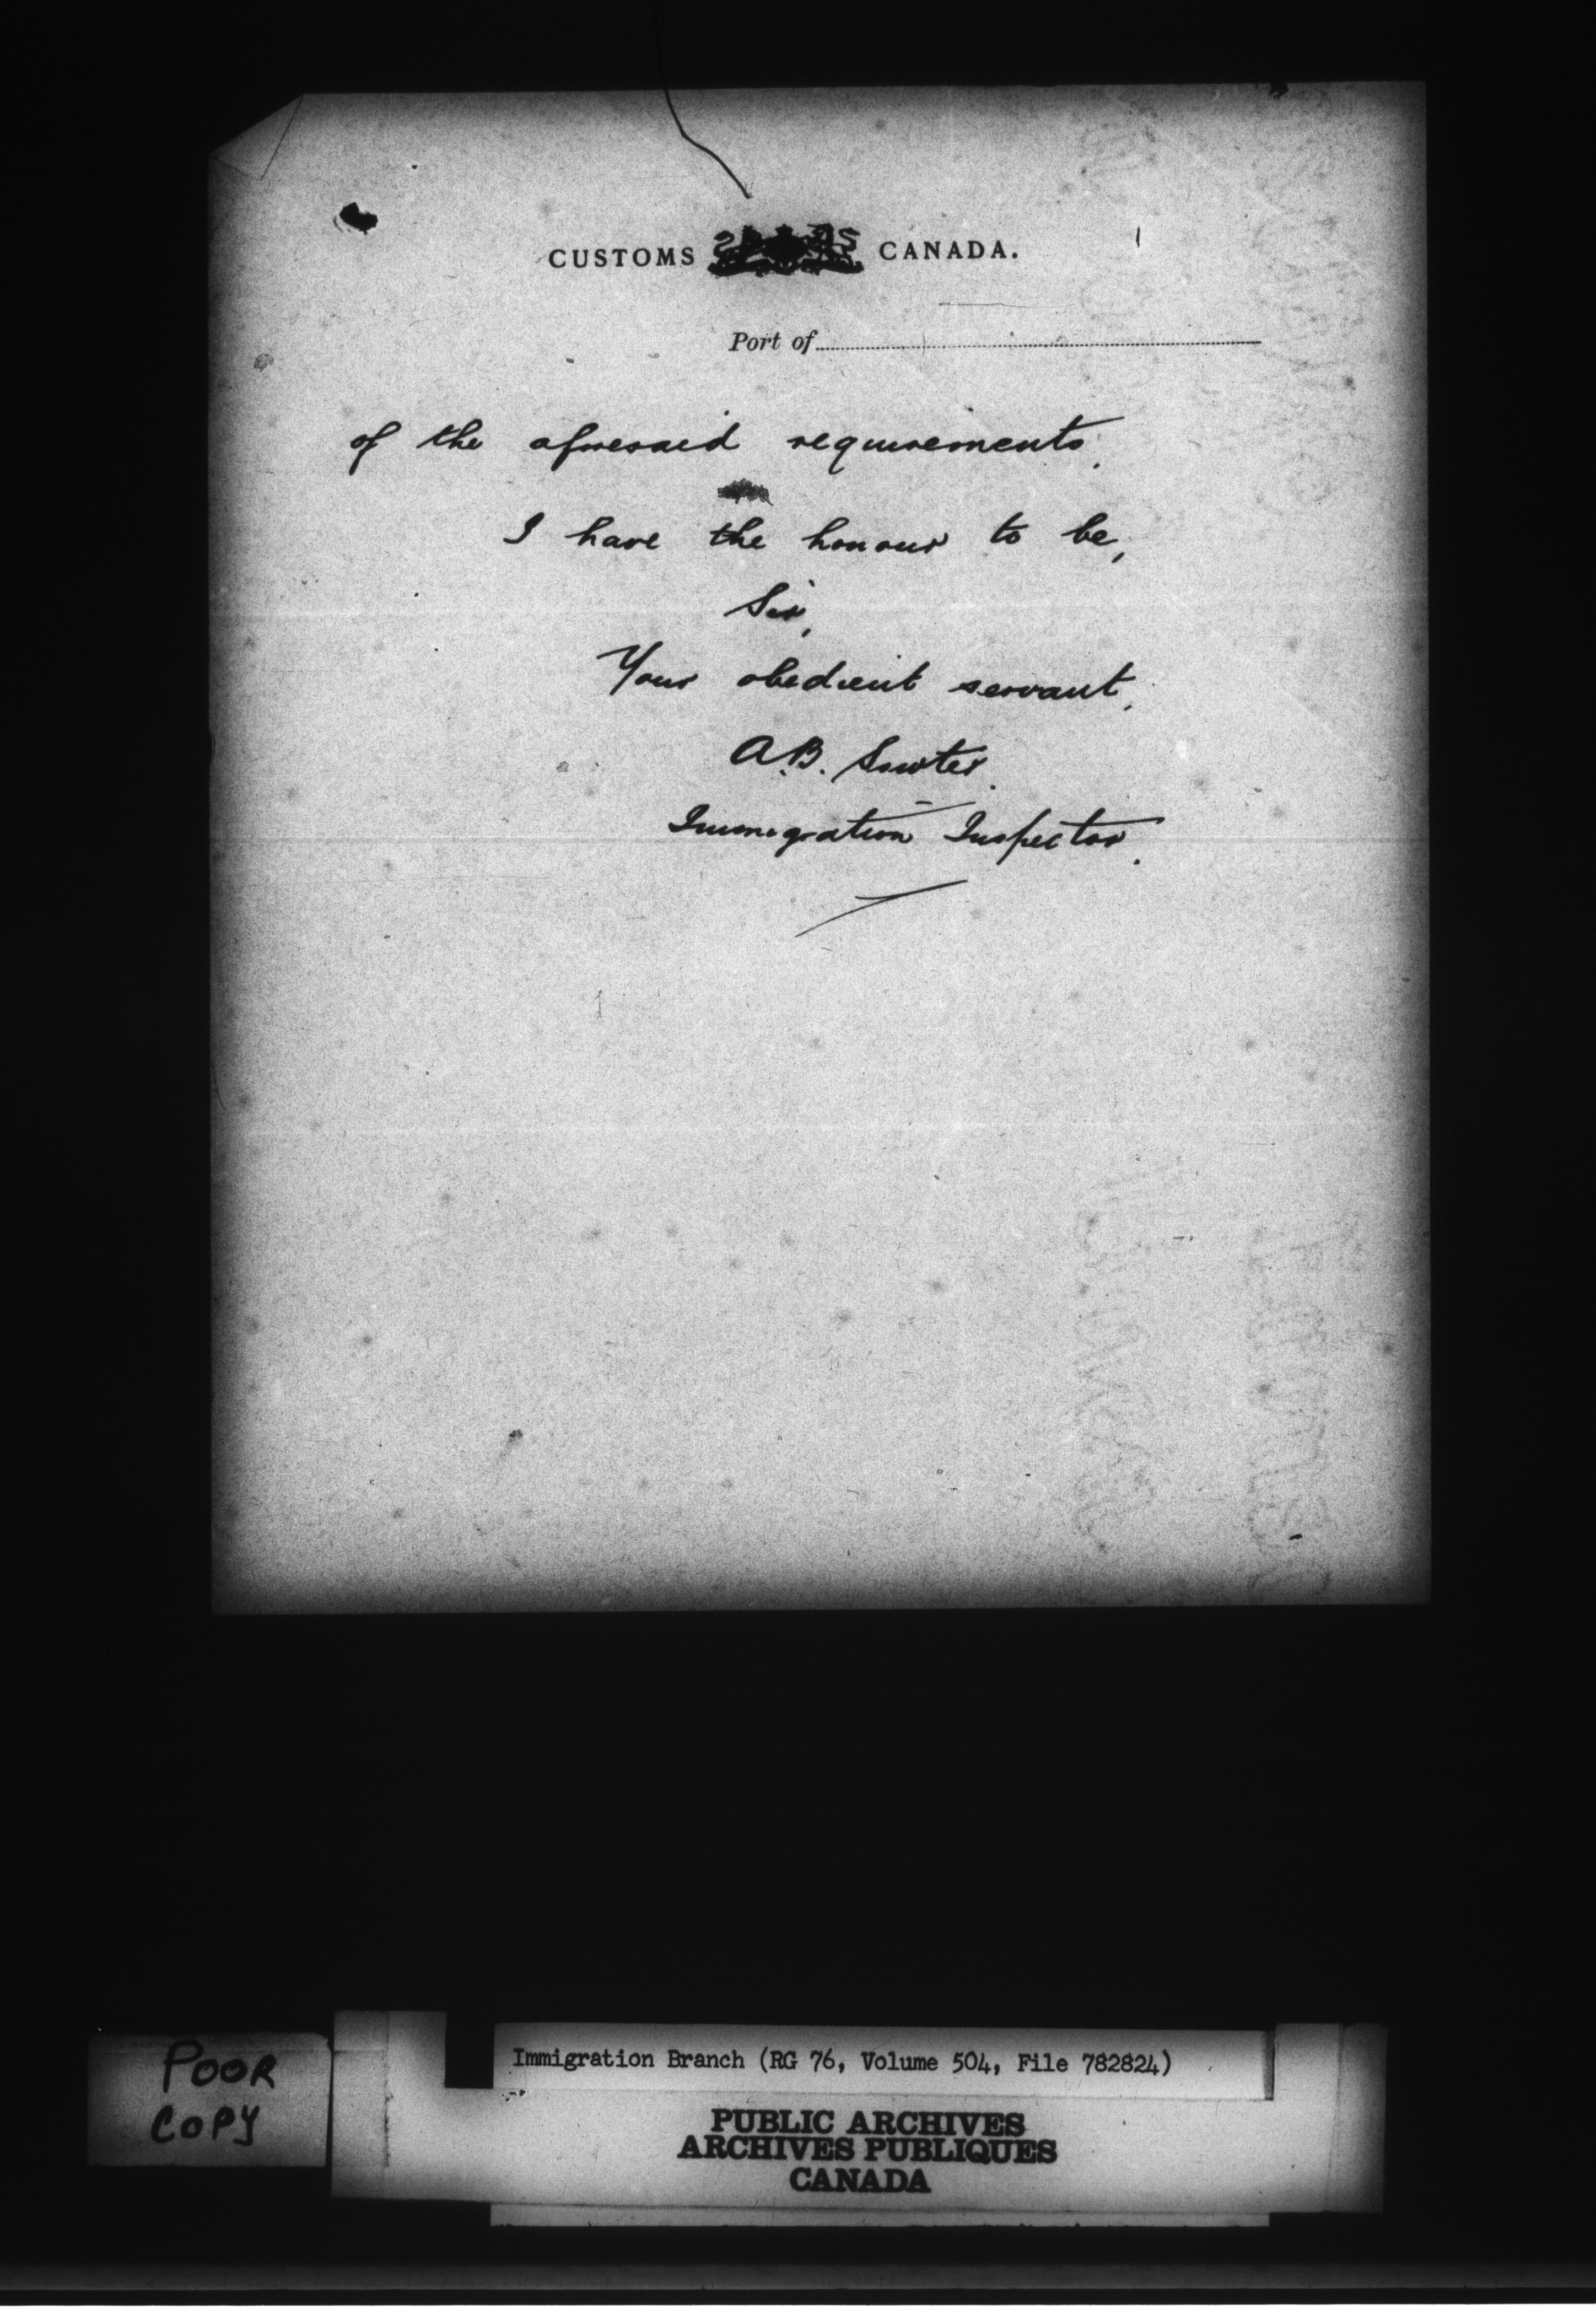 CUSTOMS CANADA.
Port of
of the aforesaid requirements.
I have the honour to be,
Sir,
Your obedient servant,
A.B. Sowter.
Immigration Inspector.
POOR
COPY
Immigration Branch (RG 76, Volume 504, File 782824)
PUBLIC ARCHIVES
ARCHIVES PUBLIQUES
CANADA